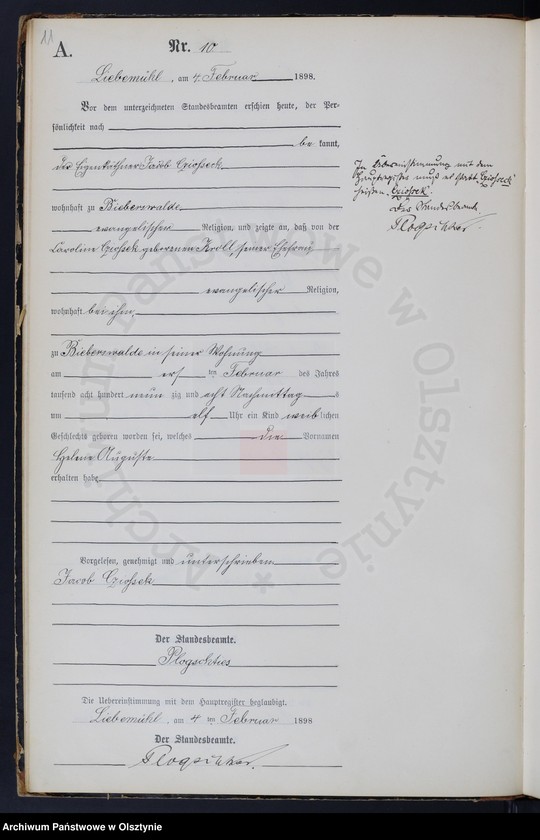 11
A.
Nr. 10
Liebemühl, am 4. Februar 1898.
Vor dem unterzeichneten Standesbeamten erschien heute, der Per-
sönlichkeit nach
be kannt,
der Eigenkäthner Jacob Czioseck
wohnhaft zu Bieberswalde
evangelischer Religion, und zeigte an, daß von der
Caroline Czossek geborenen Kroll, seiner Ehefrau
evangelischer Religion,
wohnhaft bei ihm,
zu Bieberswalde in seiner Wohnung
am ersten Februar des Jahres
tausend acht hundert neun zig und acht Nachmittags
um elf Uhr ein Kind weiblichen
Geschlechts geboren worden sei, welches die Vornamen
Helene Auguste
erhalten habe.
Vorgelesen, genehmigt und unterschrieben
Jacob
Der Standesbeamte.
Die Uebereinstimmung mit dem Hauptregister beglaubigt.
Liebemühl, am 4 ten Februar 1898
Der Standesbeamte.
In Uebereinstimmung mit dem
Hauptregister muß es statt
heißen
Der Standesbeamte
Archiwum Państwowe w Olsztynie *
Archiwum Państwowe w Olsztynie